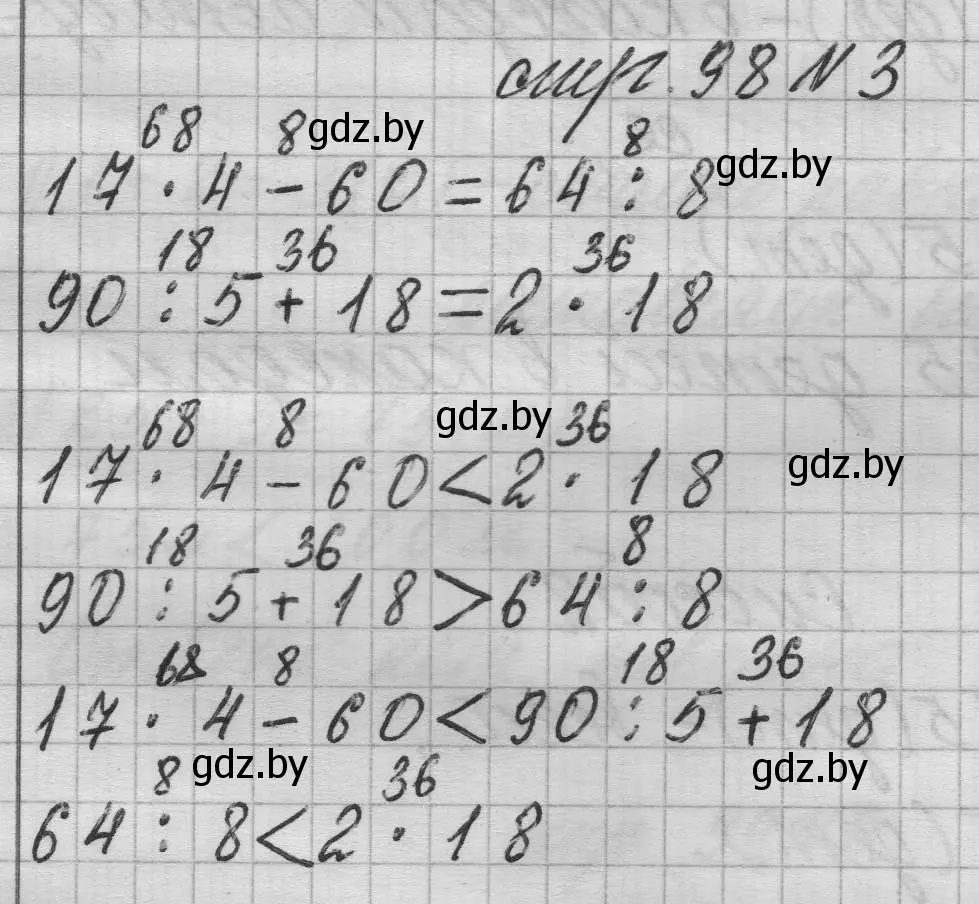 стр. 98 № 3
68 8 gdz.by 8 gdz.by
17 · 4 - 60 = 64 : 8
18 36 36
90 : 5 + 18 = 2 · 18
68 8 gdz.by 36 gdz.by
17 · 4 - 60 < 2 · 18
18 36 8
90 : 5 + 18 > 64 : 8
68 8 18 36
17 · 4 - 60 < 90 : 5 + 18
8 gdz.by 36 gdz.by
64 : 8 < 2 · 18